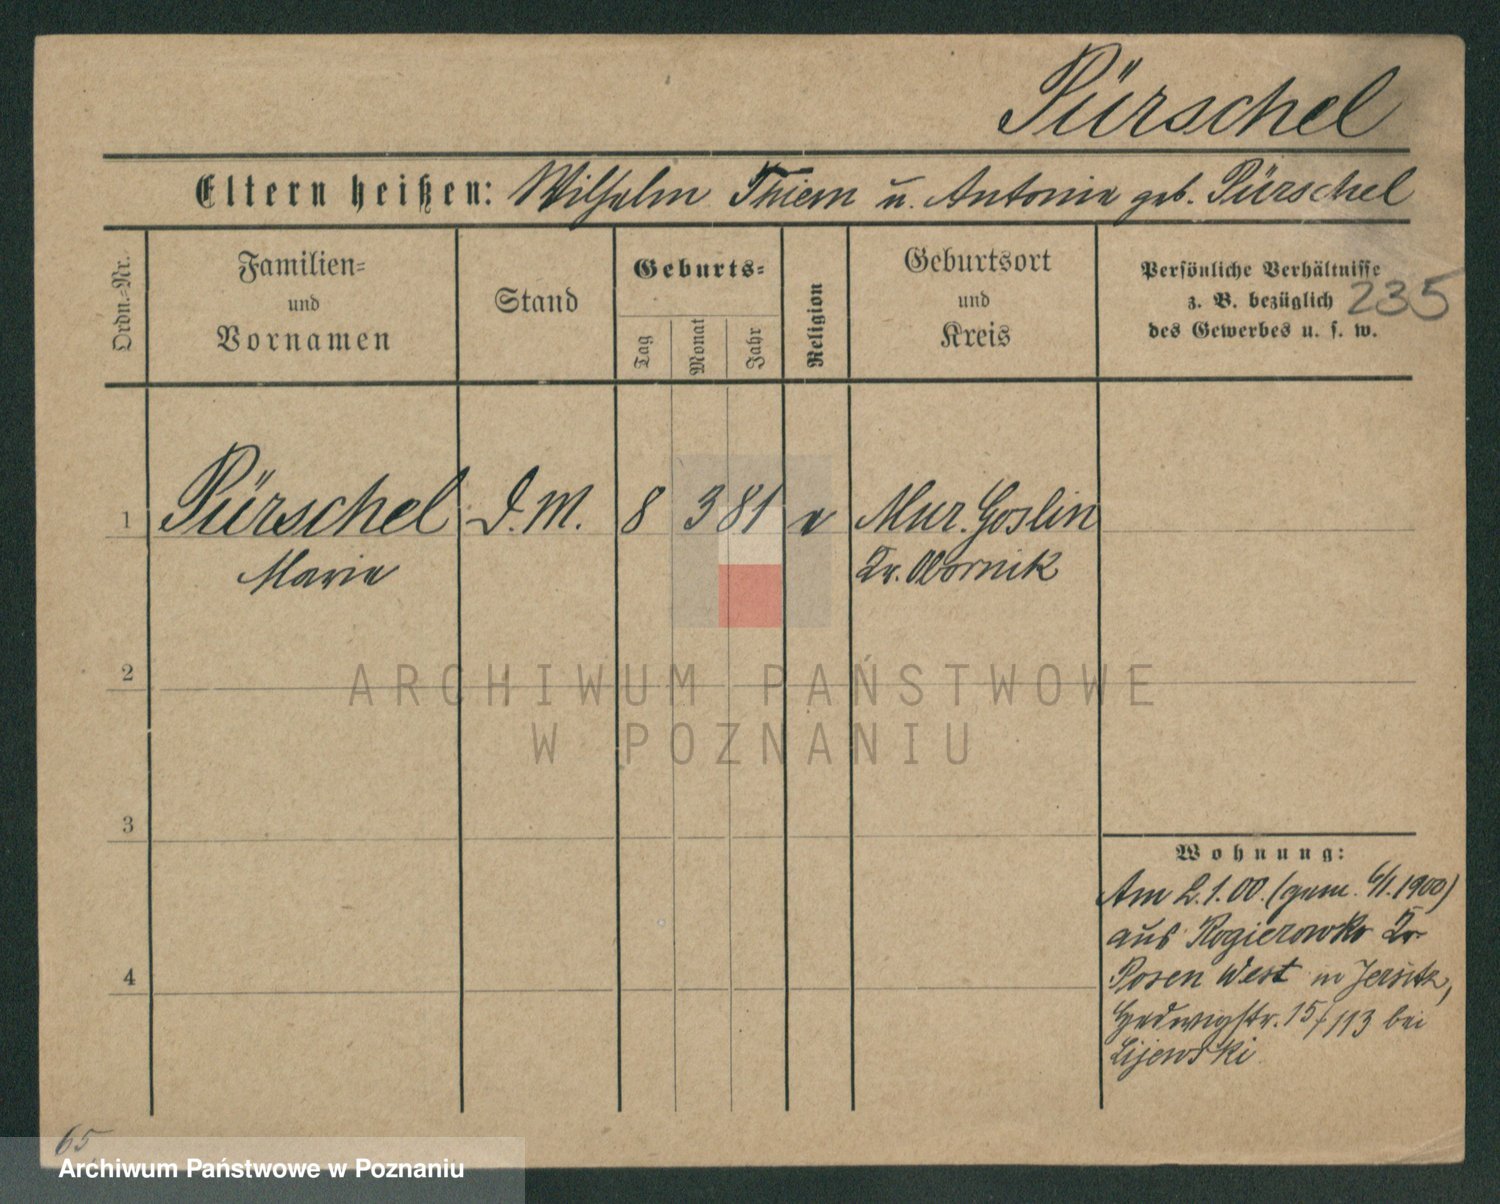 Pürschel
Eltern heißen: Wilhelm Thiem u. Antonie geb. Pürschel
Ordn.-Nr.
Familien-
und
Vornamen
Stand
Geburts-
Tag
Monat
Jahr
Religion
Geburtsort
und
Kreis
Persönliche Verhältnisse
z. B. bezüglich
des Gewerbes u. s. w.
235
1 Pürschel D. M. 8 3 81 Mur. Goslin
Marie Kr. Obornik
2
ARCHIWUM PAŃSTWOWE
W POZNANIU
3
4
Wohnung:
Am 2.1.00. (gem. 6/1.1900)
aus Rogierowko Kr.
Posen West in Jersitz,
Hedwigstr. 15/113 bei
Lijewski
65
Archiwum Państwowe w Poznaniu